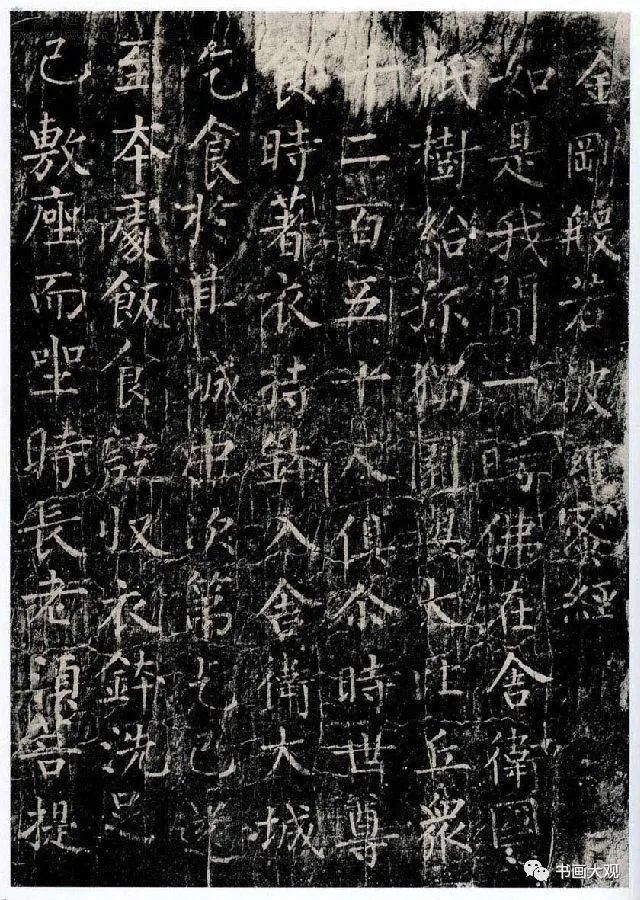 金剛般若波羅蜜經
如是我聞一時佛在舍衛國
祇樹給孤獨園與大比丘衆
千二百五十人俱尒時世尊
食時著衣持鉢入舍衛大城
乞食於其城中次第乞已還
至本處飯食訖收衣鉢洗足
已敷座而坐時長老須菩提
书画大观